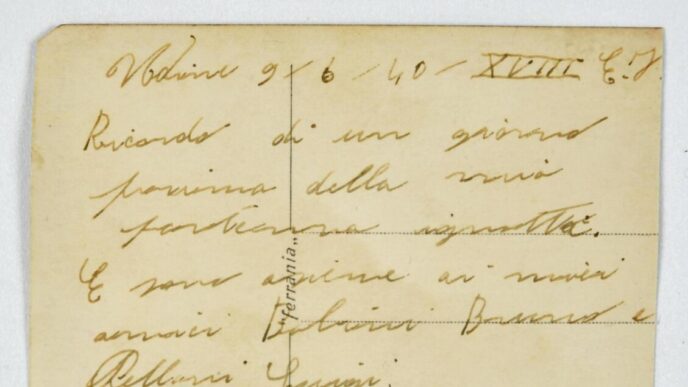 Udine 9-6-40-XVIII E.F.
Ricordo di un giorno
prima della mia
partenza ignotta.
E sono asieme ai miei
amici Bruno e
Luigi.
"ferrania"